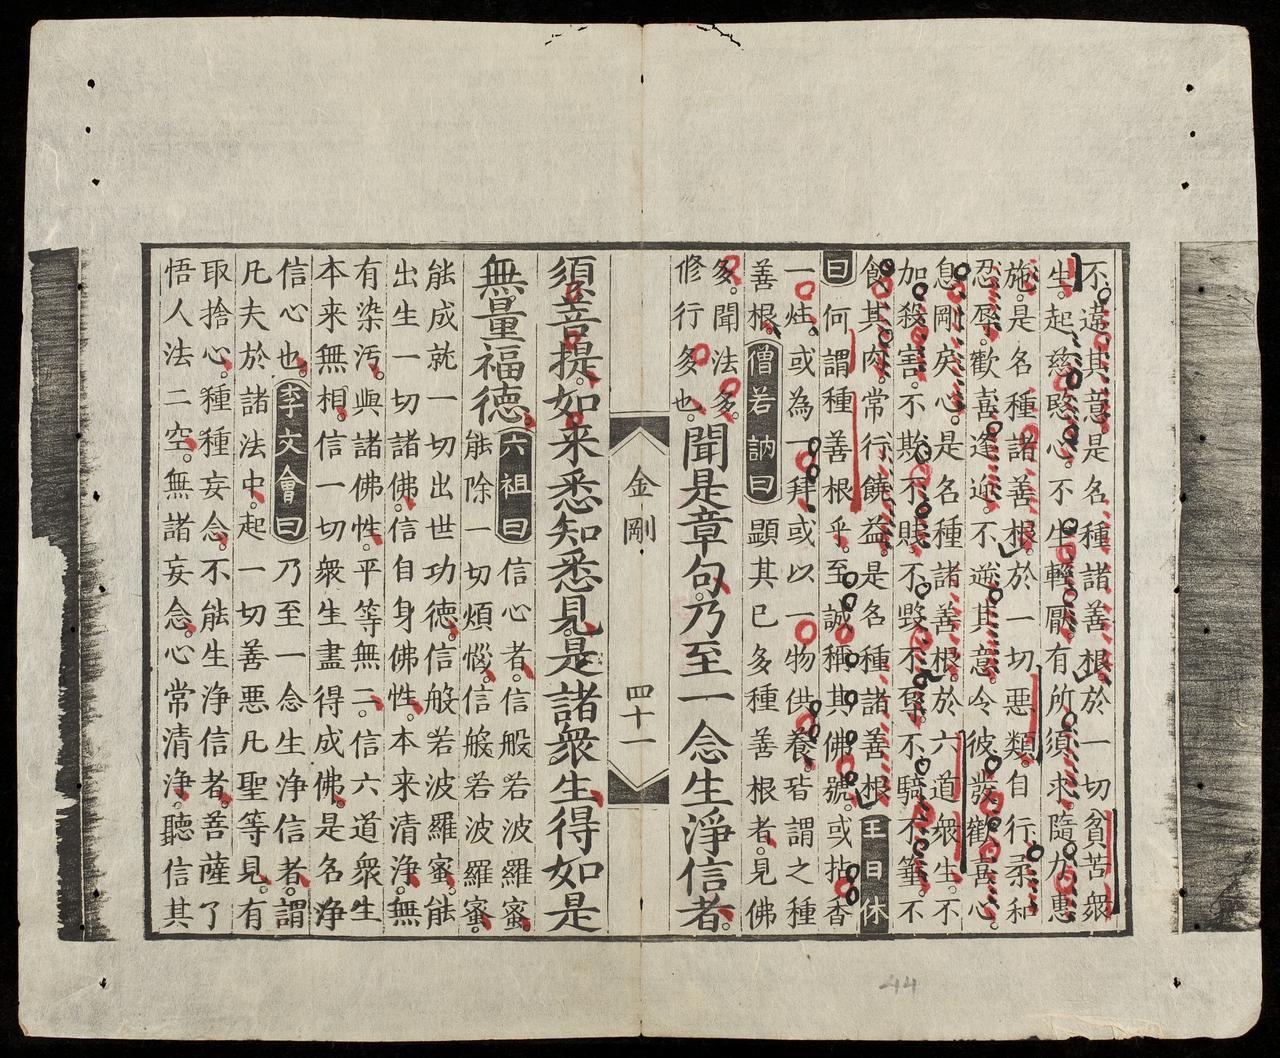 不違其意是名種諸善根於一切貧苦衆
生起慈愍心不生輕厭有所須求隨力惠
施是名種諸善根於一切惡類自行柔和
忍辱歡喜逢迎不逆其意令彼發歡喜心
息剛戾心是名種諸善根於六道衆生不
加殺害不欺不賤不毀不辱不騎不箠不
食其肉常行饒益是名種諸善根王日休
曰何謂種善根乎至誠稱其佛號或拈香
一炷或為一拜或以一物供養皆謂之種
善根僧若訥曰顯其已多種善根者見佛
多聞法多
修行多也聞是章句乃至一念生淨信者
金剛
四十一
須菩提如来悉知悉見是諸衆生得如是
無量福德六祖曰信心者信般若波羅蜜
能除一切煩惱信般若波羅蜜
能成就一切出世功德信般若波羅蜜能
出生一切諸佛信自身佛性本来清浄無
有染汚與諸佛性平等無二信六道衆生
本来無相信一切衆生盡得成佛是名浄
信心也李文會曰乃至一念生浄信者謂
凡夫於諸法中起一切善惡凡聖等見有
取捨心種種妄念不能生浄信者菩薩了
悟人法二空無諸妄念心常清浄聽信其
44